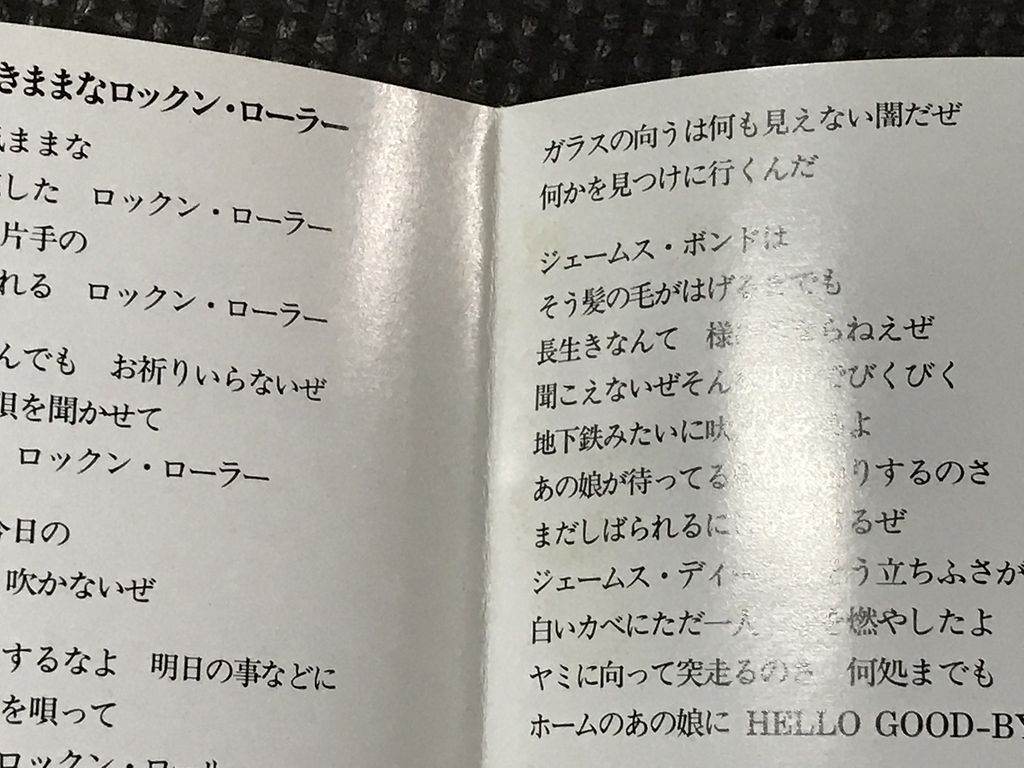 きままなロックン・ローラー
ままな
した　ロックン・ローラー
片手の
れる　ロックン・ローラー
んでも　お祈りいらないぜ
唄を聞かせて
ロックン・ローラー
今日の
吹かないぜ
するなよ　明日の事などに
を唄って
ロックン・ロール
ガラスの向うは何も見えない闇だぜ
何かを見つけに行くんだ
ジェームス・ボンドは
そう髪の毛がはげるまでも
長生きなんて　様 らねえぜ
聞こえないぜそん びくびく
地下鉄みたいに吠 よ
あの娘が待ってる りするのさ
まだしばられるに るぜ
ジェームス・ディー う立ちふさが
白いカベにただ一人 を燃やしたよ
ヤミに向って突走るのさ　何処までも
ホームのあの娘に　HELLO GOOD-BY